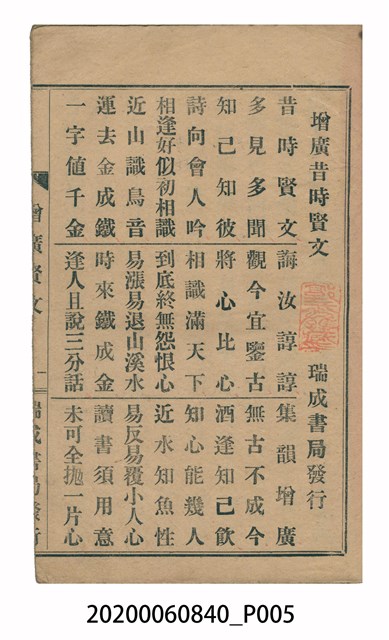 增廣昔時賢文 瑞成書局發行
昔時賢文 誨汝諄諄 集韻增廣
多見多聞 觀今宜鑒古 無古不成今
知己知彼 將心比心 酒逢知己飲
詩向會人吟 相識滿天下 知心能幾人
相逢好似初相識 到底終無怨恨心
近山識鳥音 易漲易退山溪水 易反易覆小人心
運去金成鐵 時來鐵成金 讀書須用意
一字値千金 逢人且說三分話 未可全拋一片心
增廣賢文 一 瑞成書局發行
20200060840_P005